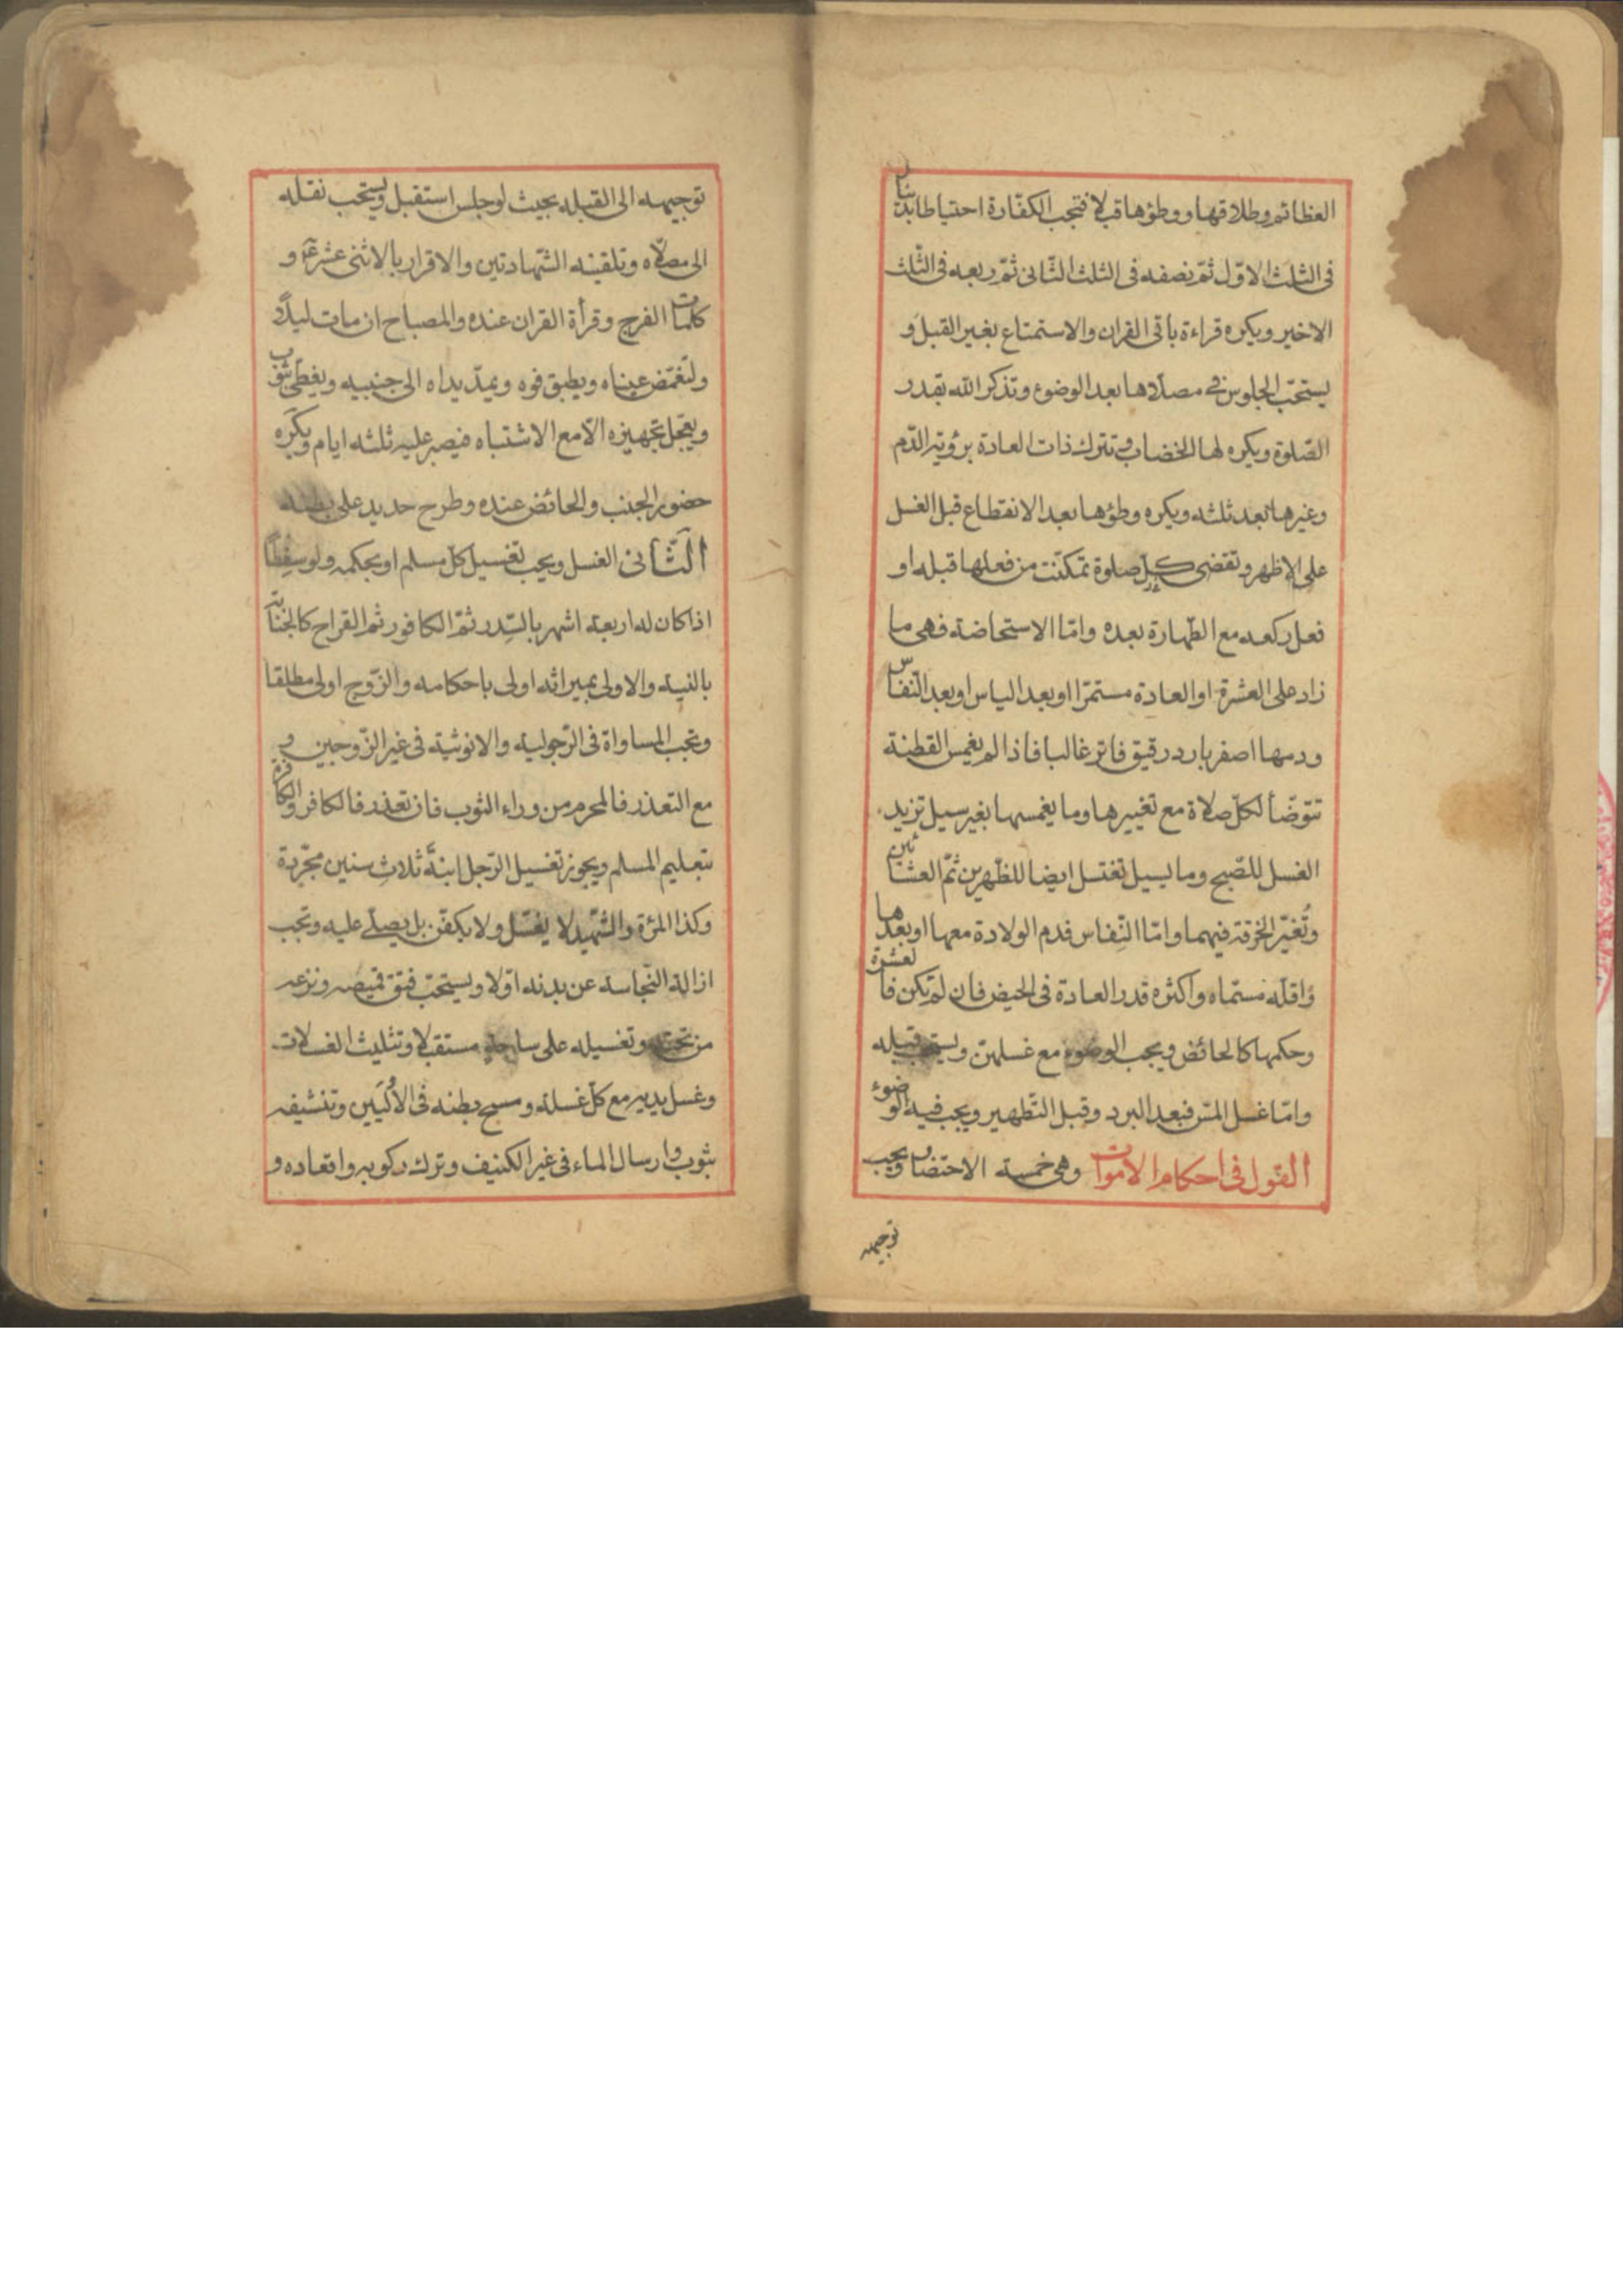 العظائم وطلاقها ووطؤها قبلا فتجب الكفّارة احتياطا بدينار
فى الثلث الاوّل ثمّ نصفه فى الثلث الثّانى ثمّ ربعه فى الثّلث
الاخير ويكره قراءة باقى القران والاستمتاع بغير القبل و
يستحبّ الجلوس فى مصلّاها بعد الوضوء وتذكر الله بقدر
الصّلوة ويكره لها الخضاب وتترك ذات العادة برؤية الدّم
وغيرها بعد ثلثه ويكره وطؤها بعد الانقطاع قبل الغسل
على الاظهر وتقضى كلّ صلوة تمكنت من فعلها قبله او
فعل ركعه مع الطّهارة بعده وامّا الاستحاضة فهى ما
زاد على العشرة او العادة مستمرّا او بعد الياس او بعد النّفاس
ودمها اصفر بارد رقيق فاتر غالبا فاذا لم يغمس القطنة
تتوضّأ لكلّ صلاة مع تغييرها وما يغمسها بغير سيل تزيد
الغسل للصّبح وما يسيل تغتسل ايضا للظّهرين ثمّ العشائين
وتُغيّر الخرقة فيهما وامّا النّفاس فدم الولادة معها او بعدها
واقلّه مسمّاه واكثره قدر العادة فى الحيض فان لم تكن فالعشرة
وحكمها كالحائض ويجب الوضوء مع غسلهنّ ويستحب قبله
وامّا غسل المسّ فبعد البرد وقبل التّطهير ويجب فيه الوضوء
القول فى احكام الاموات وهى خمسة الاحتضار ويجب
توجيهه
توجيهه الى القبله بحيث لوجلس استقبل ويستحب نقله
الى مصلّاه وتلقينه الشّهادتين والاقرار بالاثنى عشر ع و
كلمات الفرج وقرأة القران عنده والمصباح ان مات ليلًا و
ولتغمّض عيناه ويطبق فوه ويمدّ يداه الى جنبيه ويغطّى بثوب
ويعجّل تجهيزه الّا مع الاشتباه فيصبر عليه ثلثه ايام ويكره
حضور الجنب والحائض عنده وطرح حديد على بطنه
الثّانى الغسل ويجب تغسيل كلّ مسلم او بحكمه ولو سقطًا
اذا كان له اربعة اشهر بالسّدر ثمّ الكافور ثم القراح كالجنابة
بالنية والاولى بميراثه اولى باحكامه والزّوج اولى مطلقا
وتجب المساواة فى الرّجولية والانوثية فى غير الزّوجين و
مع التعذر فالمحرم من وراء الثوب فان تعذر فالكافر والكافرة
بتعليم المسلم ويجوز تغسيل الرّجل ابنة ثلاث سنين مجرّدة
وكذا المرٔة والشّهيد لا يغسّل ولا يكفّن بل يصلّى عليه وتجب
ازالة النّجاسة عن بدنه اوّلا ويستحبّ فتق قميصه ونزعه
من تحته وتغسيله على ساجة مستقبلا وتثليث الغسلات
وغسل يديه مع كلّ غسلة ومسح بطنه فى الأُوليَين وتنشيفه
بثوب وارسال الماء فى غير الكنيف وترك ركوبه واقعاده و